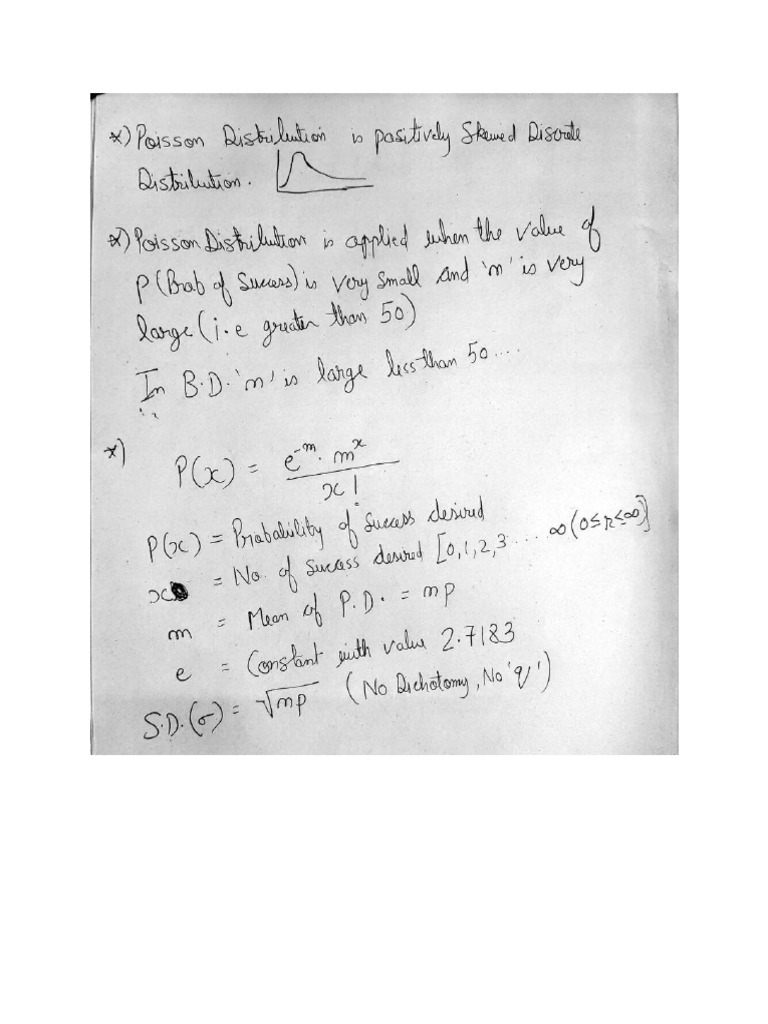 *) Poisson Distribution is positively Skewed Discrete
Distribution.
*) Poisson Distribution is applied when the value of
P (Prob of Success) is very small and 'n' is very
large (i.e greater than 50)
In B.D. 'n' is large less than 50....
*) P(x) = e^-m . m^x / x!
P(x) = Probability of Success desired
x = No. of Success desired [0,1,2,3.... ∞ (0≤r≤∞)]
m = Mean of P.D. = np
e = Constant with value 2.7183
S.D.(σ) = √np (No Dichotomy, No 'q')